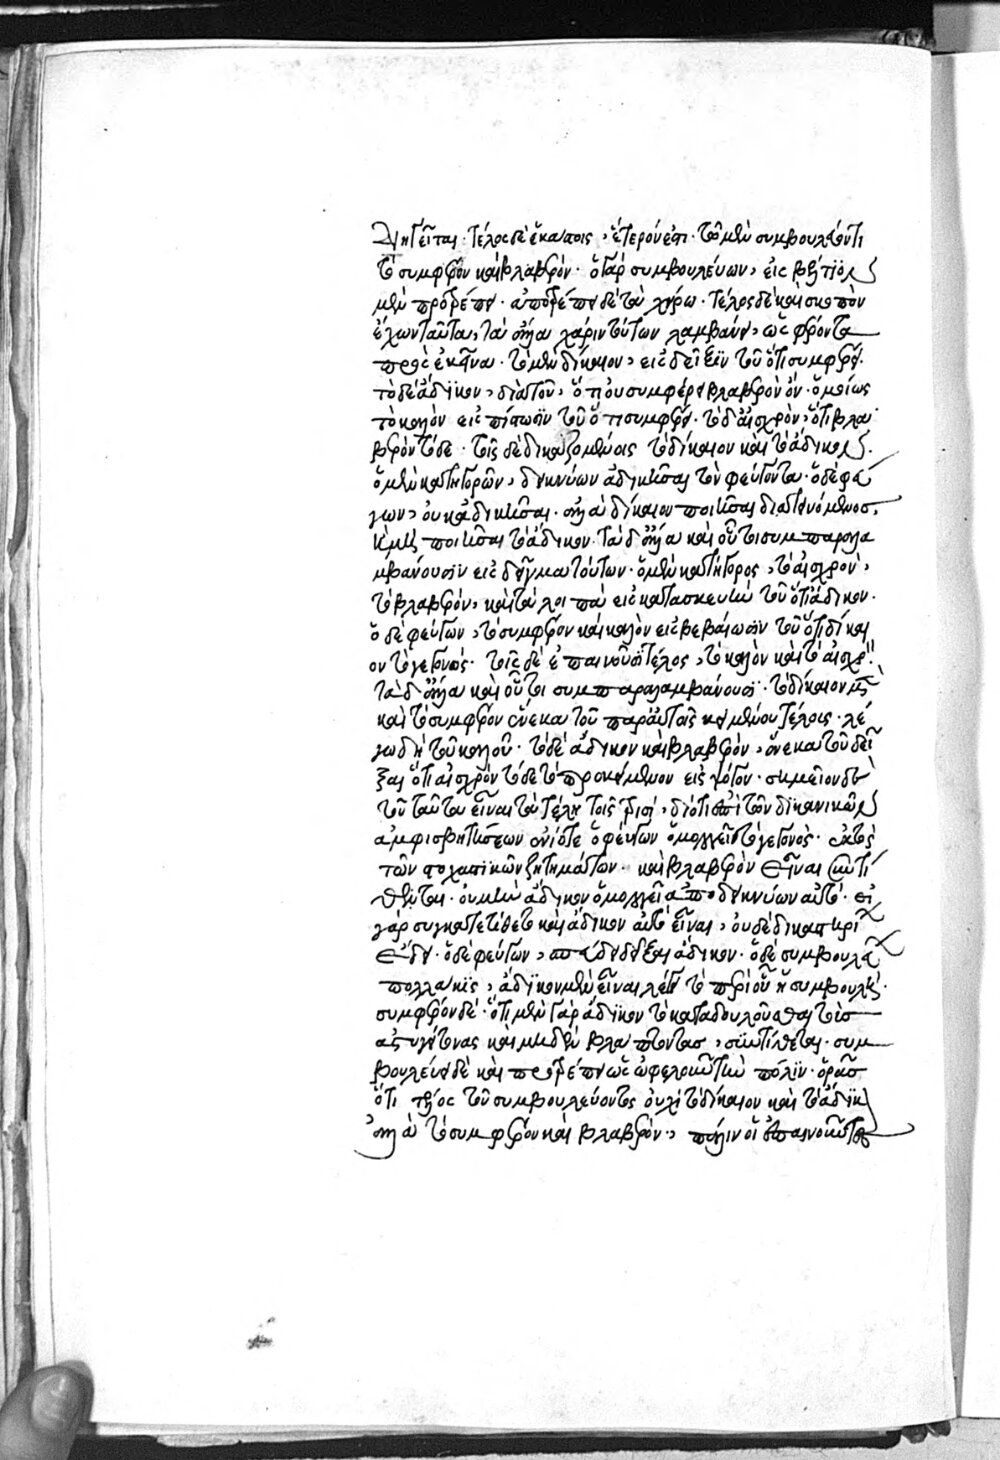 διηγεῖται· τέλος δὲ ἑκάστοις, ἕτερόν ἐστι· τῷ μὲν συμβουλεύοντι
τὸ συμφέρον καὶ βλαβερόν· ὁ γὰρ συμβουλεύων, εἰς βέλτιον
μὲν προτρέπει· ἀποτρέπει δὲ τὸ χεῖρω· τέλος δὲ καὶ σκοπὸν
ἔχων ταῦτα, τὰ ἄλλα χάριν τούτων λαμβάνει, ὡς φέροντα
πρὸς ἐκεῖνα· τὸ μὲν δίκαιον, εἰς δεῖξιν τοῦ ὅτι συμφέρει·
τὸ δὲ ἄδικον, διὰ τοῦ, ὅτι οὐ συμφέρει βλαβερὸν ὄν· ὁμοίως
τὸ καλὸν εἰς πίστωσιν τοῦ ὅτι συμφέρει· τὸ δ' αἰσχρὸν, ὅτι βλα
βερὸν τόδε· τοῖς δὲ δικαζομένοις τὸ δίκαιον καὶ τὸ ἄδικον·
ὁ μὲν κατηγορῶν, δεικνύων ἀδικῆσαι τὸν φεύγοντα· ὁ δὲ φεύ
γων, οὐκ ἀδικῆσαι· ἀλλὰ δίκαιον ποιῆσαι διατεινόμενος,
ἢ μὴ ποιῆσαι τὸ ἄδικον· τὰ δ' ἄλλα καὶ οὗτοι συμπαραλα
μβάνουσιν εἰς δεῖγμα τούτων· ὁ μὲν κατήγορος, τὸ αἰσχρὸν,
τὸ βλαβερόν, καὶ τὰ λοιπὰ εἰς κατασκευὴν τοῦ ὅτι ἄδικον·
ὁ δὲ φεύγων, τὸ συμφέρον καὶ καλὸν εἰς βεβαίωσιν τοῦ ὅτι δίκαι
ον τὸ γεγονός· τοῖς δὲ ἐπαινοῦσι τέλος, τὸ καλὸν καὶ τὸ αἰσχρόν·
τὰ δ' ἄλλα καὶ οὗτοι συμπαραλαμβάνουσι· τὸ δίκαιον μὲν
καὶ τὸ συμφέρον ἕνεκα τοῦ παρ' αὐτοῖς κειμένου τέλους· λέ
γω δὴ τοῦ καλοῦ· τὸ δὲ ἄδικον καὶ βλαβερὸν, ἕνεκα τοῦ δεῖ
ξαι ὅτι αἰσχρὸν τόδε τὸ προκείμενον εἰς ψόγον· σημεῖον δὲ
τοῦ ταῦτα εἶναι τὰ τέλη τοῖς τρισὶ, διότι ἐπὶ τῶν δικανικῶν
ἀμφισβητήσεων ἐνίοτε ὁ φεύγων ὁμολογεῖ τὸ γεγονὸς· ἐκτὸς
τῶν στοχαστικῶν ζητημάτων· καὶ βλαβερὸν εἶναι συντί
θεται· οὐ μὴν ἄδικον ὁμολογεῖ ἀποδεικνύων αὐτό· εἰ
γὰρ συγκατετίθετο καὶ ἄδικον αὐτὸ εἶναι, οὐδὲ δικαστηρί
ου ἔδει· ὁ δὲ φεύγων, ἄδικον· ὁ δὲ συμβουλεύων
πολλάκις, ἄδικον μὲν εἶναι λέγει τὸ περὶ οὗ ἡ συμβουλὴ·
συμφέρον δέ· ὅτι μὲν γὰρ ἄδικον τὸ καταδουλοῦσθαι τοὺς
ἀστυγείτονας καὶ μηδὲν βλάπτοντας, συντίθεται· συμ
βουλεύει δὲ καὶ προτρέπει ὡς ὠφελοῦν τὴν πόλιν· ὁρᾷς
ὅτι τέλος τοῦ συμβουλεύοντος οὐχὶ τὸ δίκαιον καὶ τὸ ἄδικον
ἀλλὰ τὸ συμφέρον καὶ βλαβερόν, πάλιν οἱ ἐπαινοῦντες